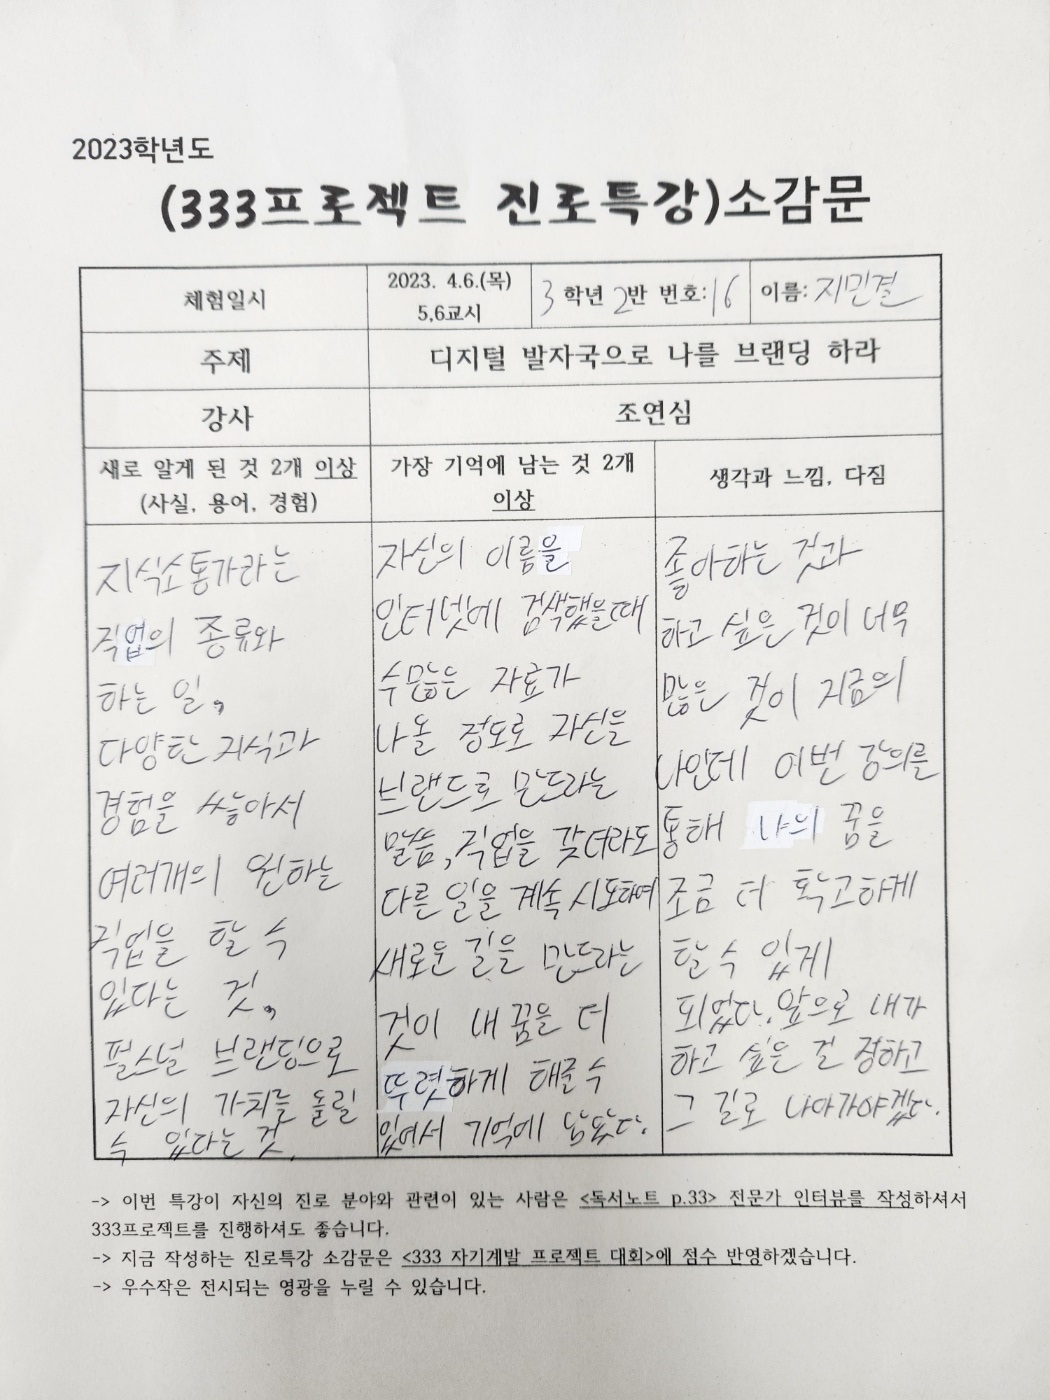 2023학년도
(333프로젝트 진로특강)소감문
체험일시
2023. 4.6.(목)
5,6교시
3 학년 2반 번호:16
이름: 지민결
주제
디지털 발자국으로 나를 브랜딩 하라
강사
조연심
새로 알게 된 것 2개 이상
(사실, 용어, 경험)
가장 기억에 남는 것 2개
이상
생각과 느낌, 다짐
지식소통가라는
직업의 종류와
하는 일,
다양한 지식과
경험을 쌓아서
여러개의 원하는
직업을 할 수
있다는 것,
펄스널 브랜딩으로
자신의 가치를 올릴
수 있다는 것,
자신의 이름을
인터넷에 검색했을때
수많은 자료가
나올 정도로 자신을
브랜드로 만드라는
말씀, 직업을 갖더라도
다른 일을 계속 시도하여
새로운 길을 만드라는
것이 내 꿈을 더
뚜렷하게 해준 수
있어서 기억에 남았다.
좋아하는 것과
하고 싶은 것이 너무
많은 것이 지금의
나인데 이번 강의를
통해 나의 꿈을
조금 더 확고하게
할 수 있게
되었다. 앞으로 내가
하고 싶은 걸 정하고
그 길로 나아가야겠다.
-> 이번 특강이 자신의 진로 분야와 관련이 있는 사람은 <독서노트 p.33> 전문가 인터뷰를 작성하셔서
333프로젝트를 진행하셔도 좋습니다.
-> 지금 작성하는 진로특강 소감문은 <333 자기계발 프로젝트 대회>에 점수 반영하겠습니다.
-> 우수작은 전시되는 영광을 누릴 수 있습니다.